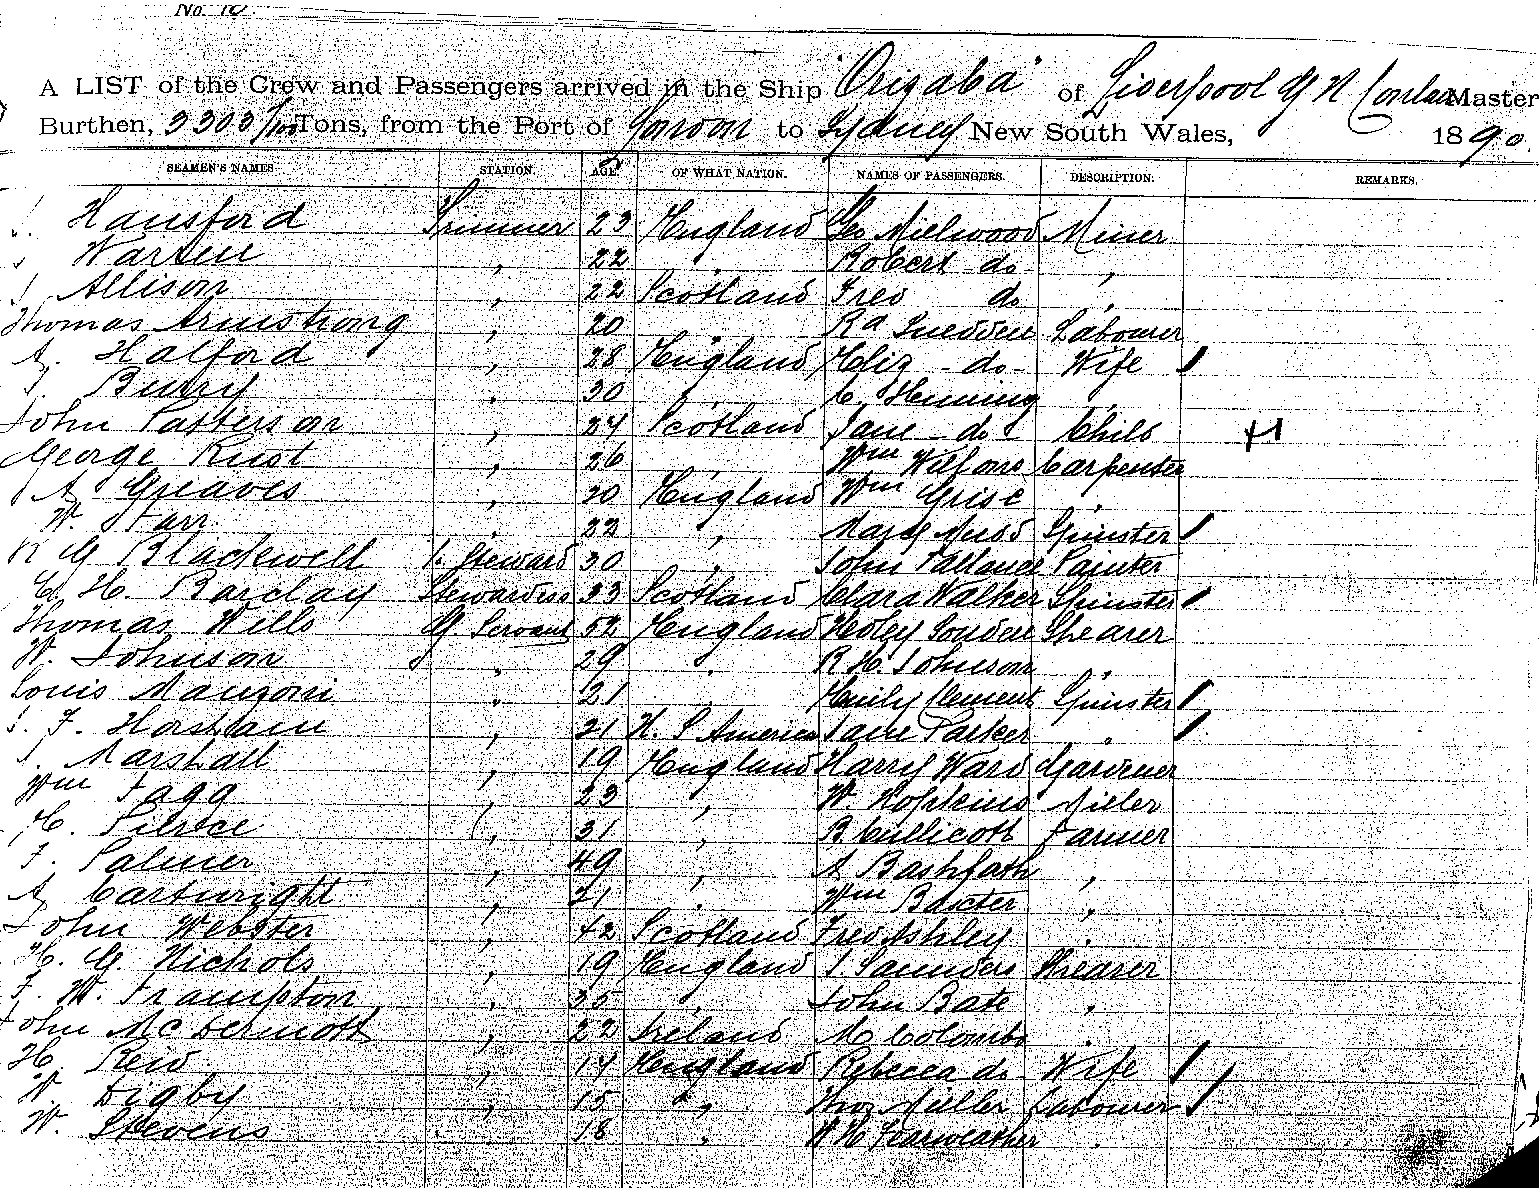 No. 10
A LIST of the Crew and Passengers arrived in the Ship "Orizaba" of Liverpool G N Conlan Master
Burthen, 3303/100 Tons, from the Port of London to Sydney New South Wales, 1890.
SEAMEN'S NAMES STATION. AGE OF WHAT NATION. NAMES OF PASSENGERS. DESCRIPTION. REMARKS.
Hansford Trimmer 23 England Geo Millwood Miner
J. Warren " 22 " Robert do "
J. Allison " 22 Scotland Fred do "
Thomas Armstrong " 20 Rd Labourer
A. Halford " 28 England Eliz - do - Wife
Burry " 30 " C. Henning "
John Patterson " 24 Scotland Jane - do - Child
George Rust " 26 " Wm Carpenter
A. Greaves " 20 England Wm Grise "
W. Farr " 22 " Mary Spinster
R G Blackwell Steward 30 " John Pallance Painter
C. H. Barclay Stewardess 33 Scotland Clara Walker Spinster
Thomas Wills G. Servant 52 England Shearer
W. Johnson " 29 " R. H. Johnson "
Louis Mangoni " 21 Emily Clement Spinster
J. F. Horsham " 21 N. S America Jane Parker "
J. Marshall " 19 England Harry Ward Gardener
Wm Fagg " 23 " W Hopkins Miller
C. Pierce " 31 " R. Cullicott Farmer
F. Palmer " 49 " A "
A Cartwright " 21 " Wm Baxter "
John Webster " 42 Scotland Fred Ashley "
H. G. Nichols " 19 England J. Saunders Shearer
F. W. Frampton " 25 " John Bate "
John McDermott " 22 Ireland M Colombo "
H. Reid " 17 England Rebecca do Wife
W Digby " 15 " Thos Miller Labourer
W. Stevens " 18 " W H Fearweather "